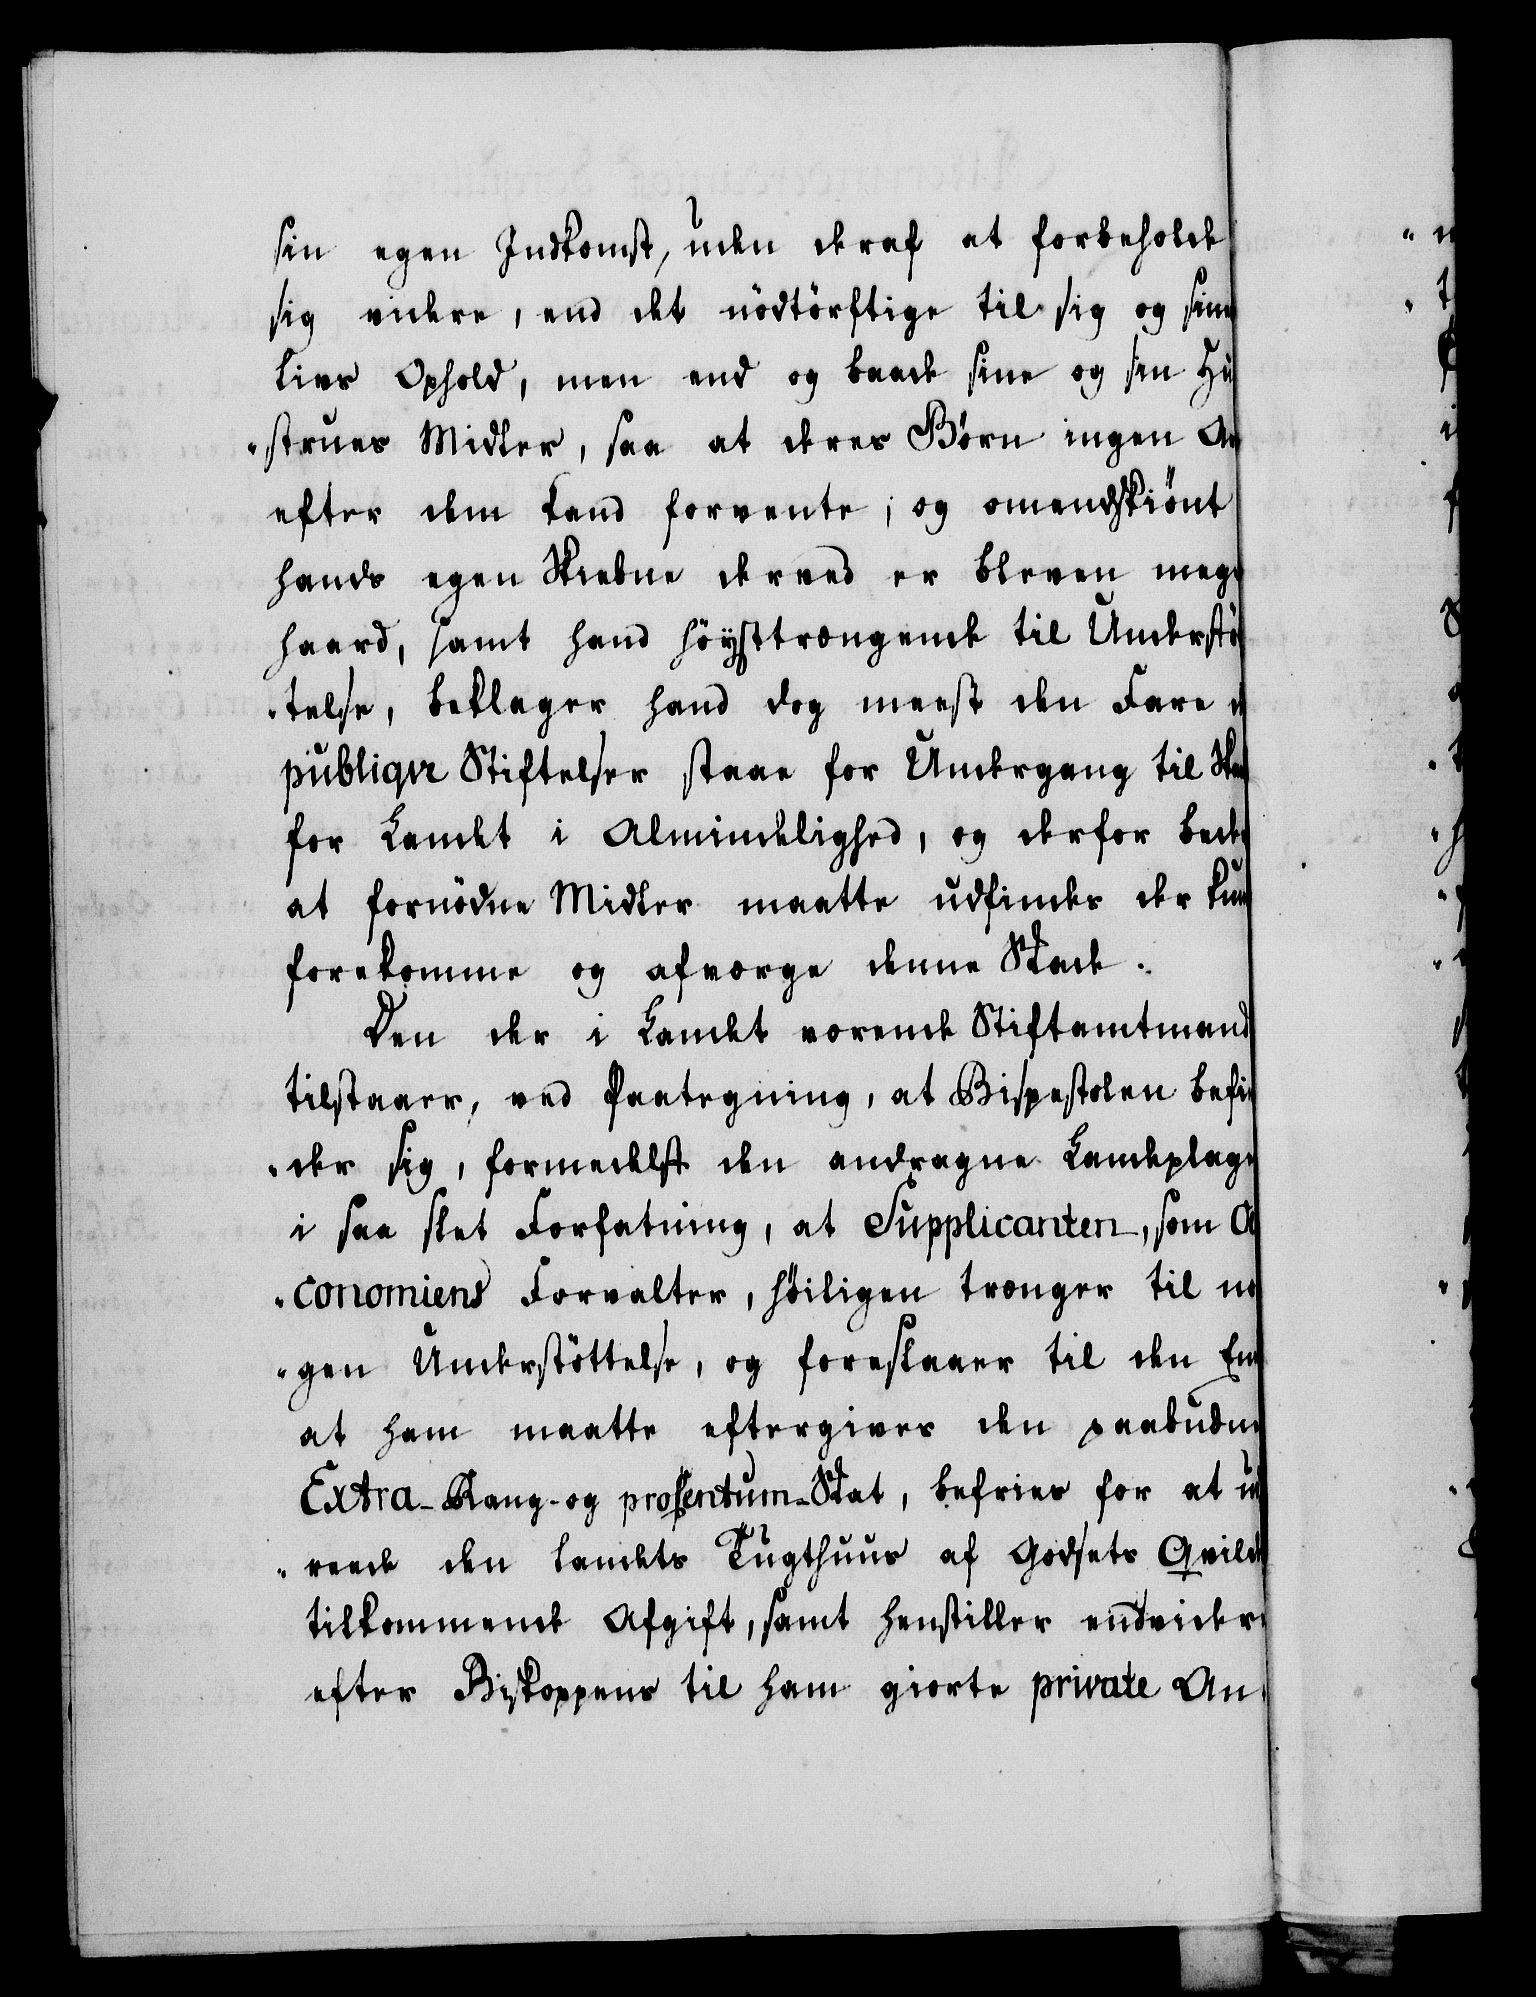 sin egen Indkomst, uden deraf at forbeholde
sig videre, end det nödtörftige til sig og sine
Livs Ophold, men end og baade sine og sin Hu
"strues Midler, saa at deres Børn ingen Ar
efter dem kand forvente; og omendskiönt
hands egen Skiebne derved er bleven mege
haard, samt hand höysttrængende til Understö
"telse, beklager hand dog meest den Fare d
publiqve Stiftelser staae for Undergang til Ska
for Landet i Almindelighed, og derfor beder
at fornödne Midler maatte udfindes der kun
forekomme og afværge denne Skade.
Den der i Landet værende Stiftamtmand
tilstaaer, ved Paategning, at Bispestolen befin
"der sig, formedelst den andragne Landeplage
i saa slet Forfatning, at Supplicanten, som O
"conomiens Forvalter, höiligen trænger til no
"gen Understöttelse, og foreslaaer til den End
at ham maatte eftergives den paabudne
Extra- Rang- og procentum-Skat, befries for at u
"reede den Landets Tugthuus af Godsets Qvilde
tilkommende Afgift, samt henstiller endvidere
efter Biskoppens til ham giorte private An